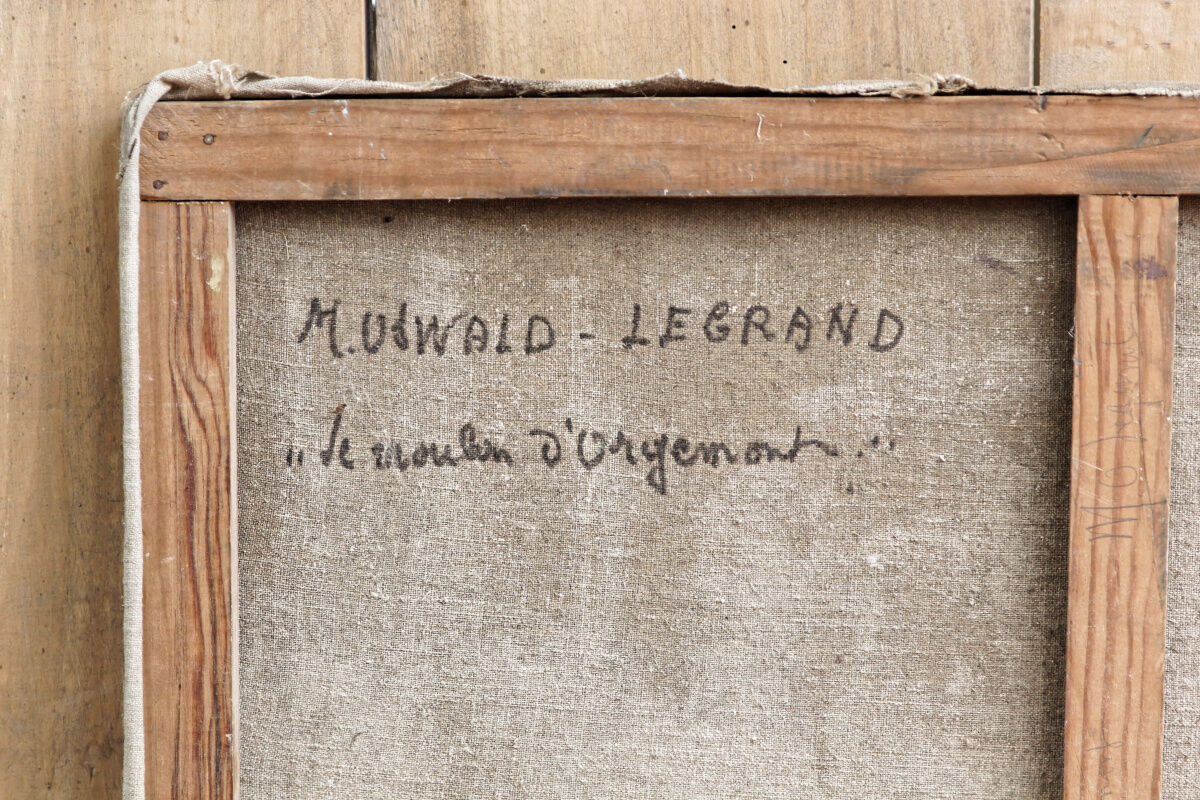 M. OSWALD - LEGRAND
"le moulin d'Orgemont."